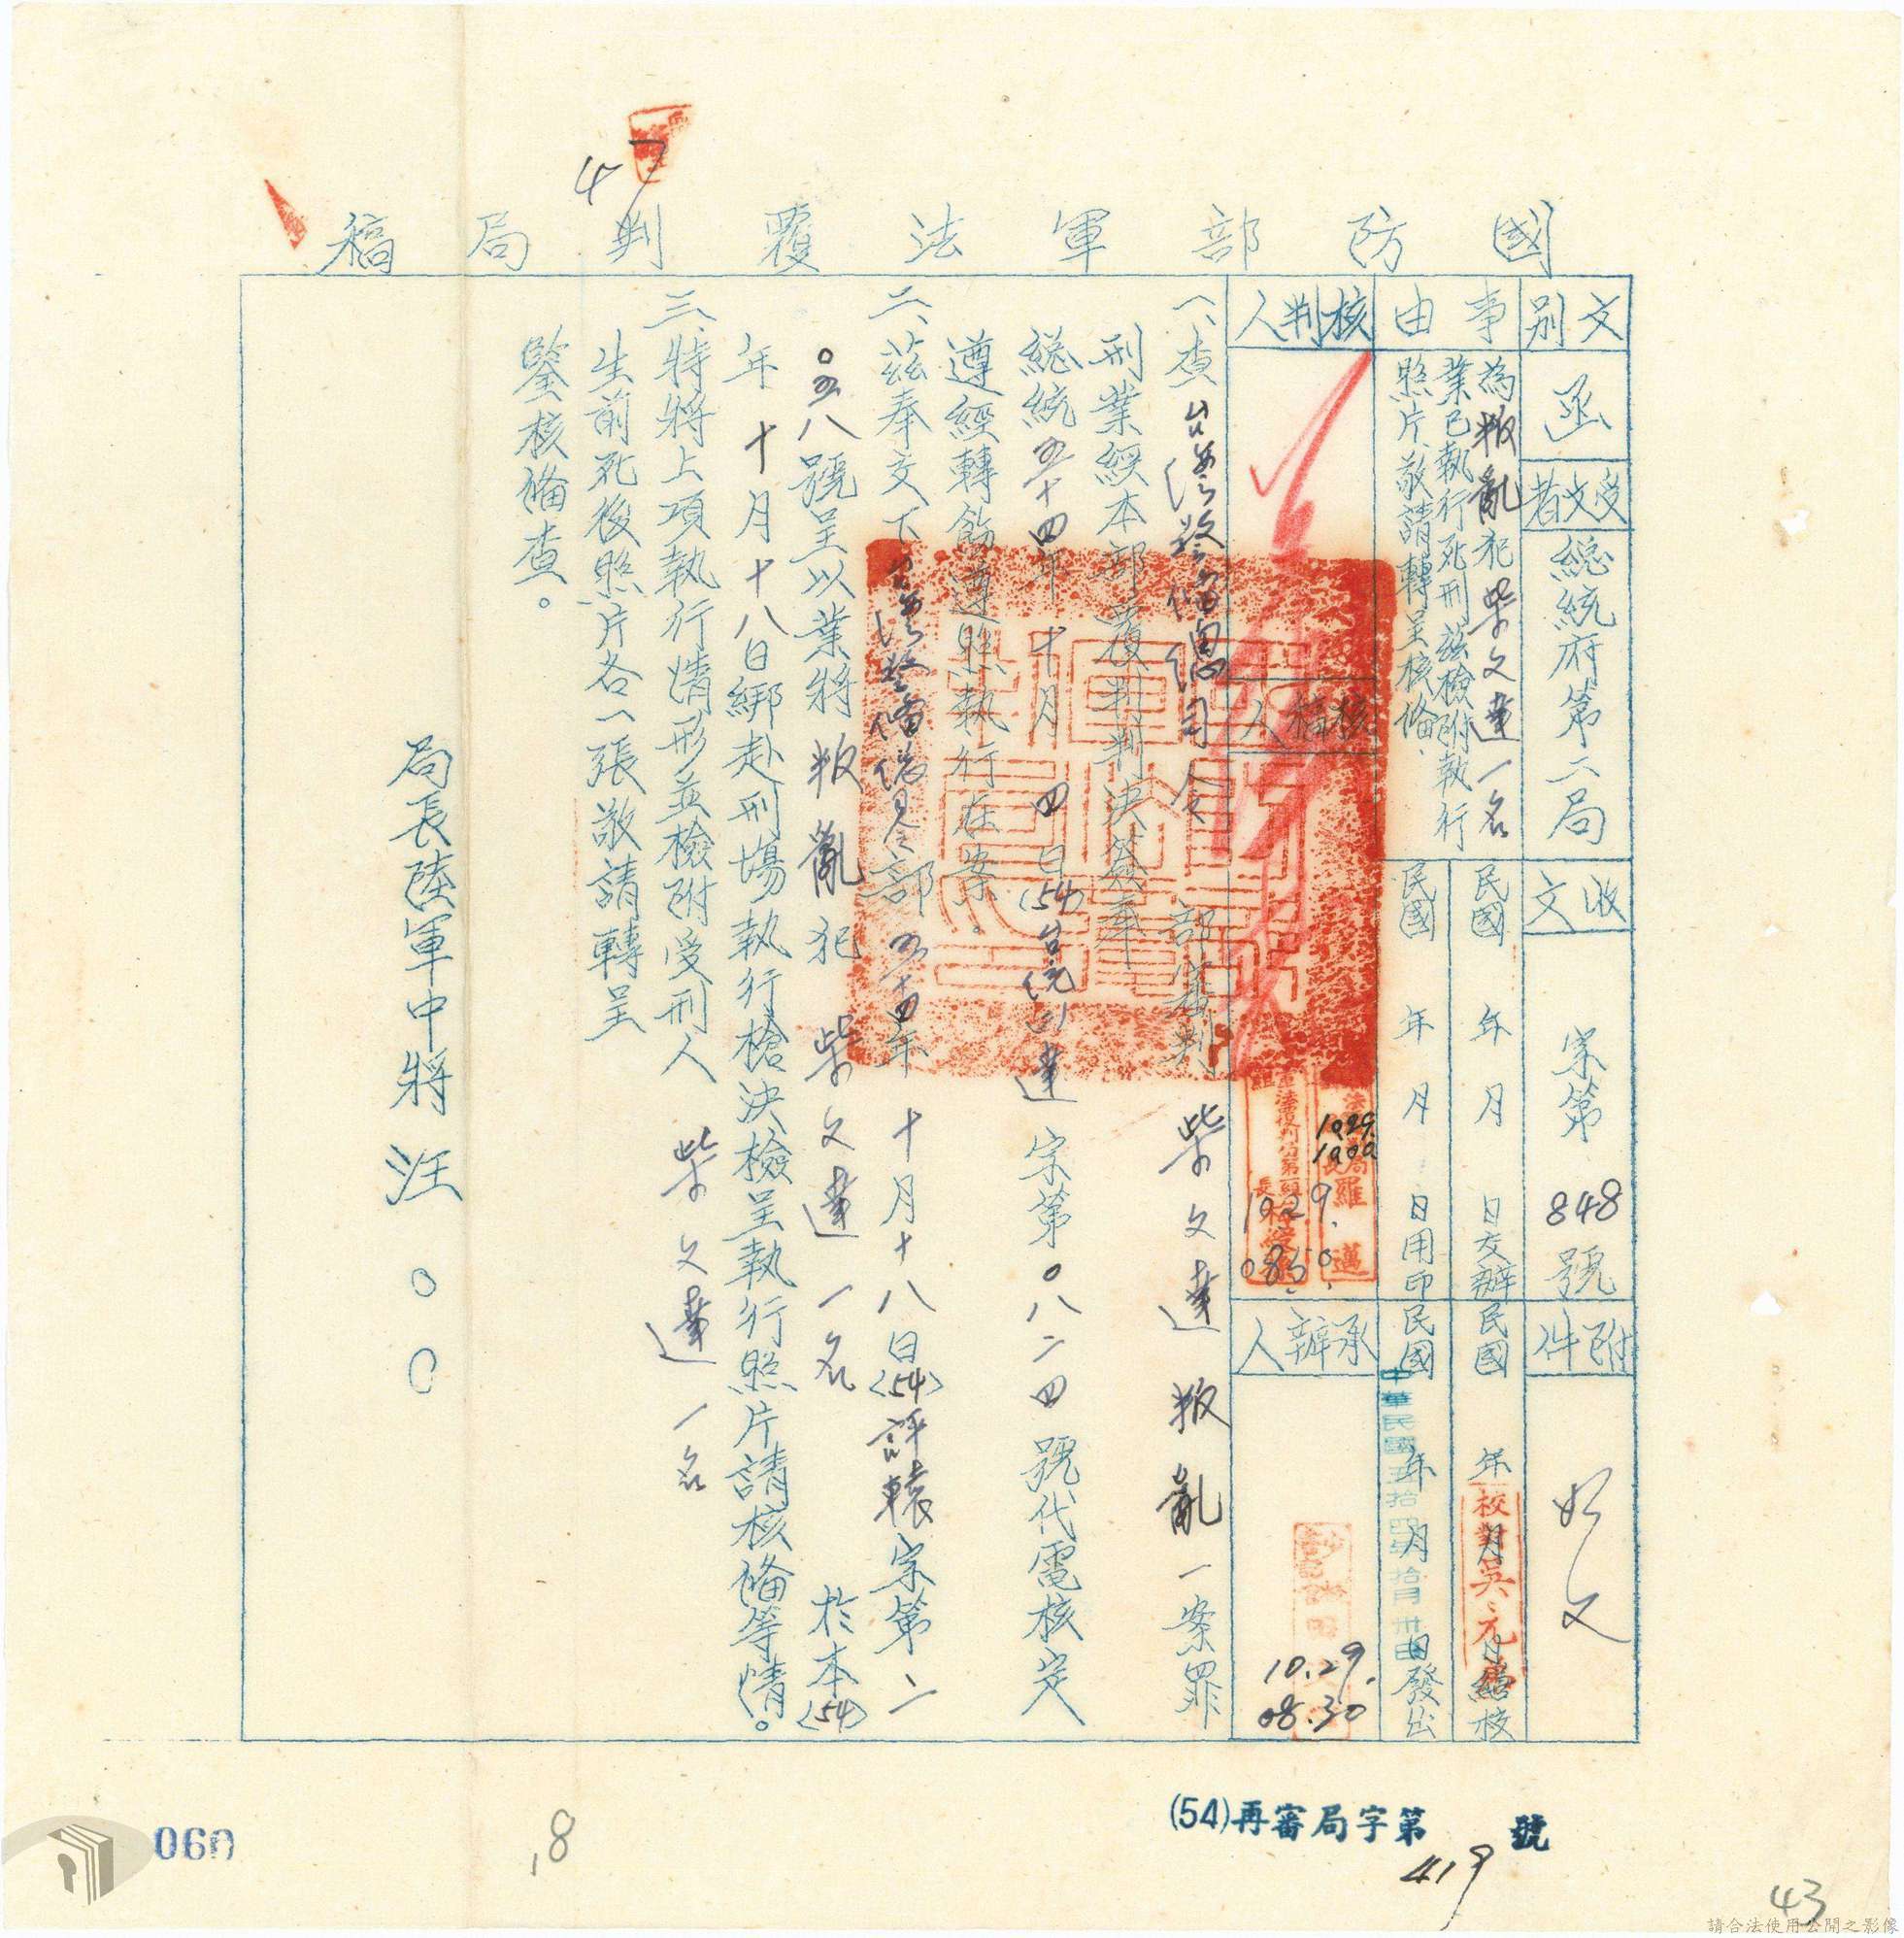 國防部軍法覆判局稿
47
文別
函
受文者
總統府第二局
收文
字第848號
附件
如文
事由
為叛亂犯柴文達一名
業已執行死刑茲檢附執行
照片敬請轉呈核備
民國 年 月 日交辦
民國 年 月 日繕校
民國 年 月 日用印
民國 年 月 日發出
中華民國五拾四年拾月
核判人
核稿人
羅邁
1029
1000
10.29.
0850.
承辦人
10.29.
08.30
一、查台灣警備總司令部審判柴文達叛亂一案罪
刑業經本部覆判判決簽奉
總統五十四年十月四日(54)台統(二)達字第〇八二四號代電核定
遵經轉飭遵照執行在案。
二、茲奉交下台灣警備總司令部五十四年十月十八日(54)評轅字第二
〇五八號呈以業將叛亂犯柴文達一名於本(54)
年十月十八日綁赴刑場執行槍決檢呈執行照片請核備等情。
三、特將上項執行情形並檢附受刑人柴文達一名
生前死後照片各一張敬請轉呈
鑒核備查。
局長陸軍中將汪〇〇
(54)再審局字第419號
060
18
43
請合法使用公開之影像